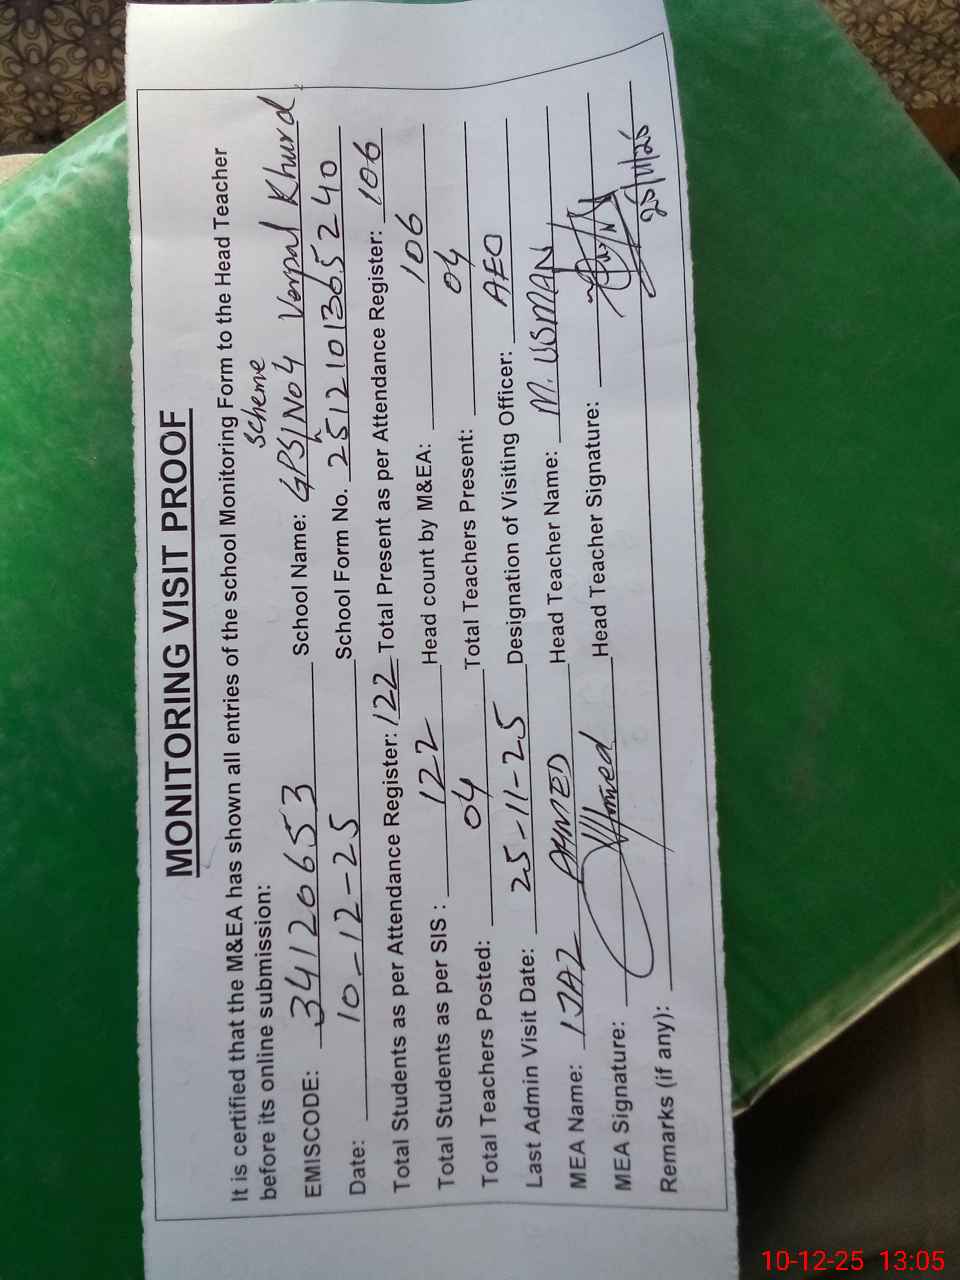 MONITORING VISIT PROOF
It is certified that the M&EA has shown all entries of the school Monitoring Form to the Head Teacher
before its online submission:
Scheme
EMISCODE: 34120653 School Name: GPS No 4 Verpal Khurd
Date: 10-12-25 School Form No. 2512101365240
Total Students as per Attendance Register: 122 Total Present as per Attendance Register: 106
Total Students as per SIS : 122 Head count by M&EA: 106
Total Teachers Posted: 04 Total Teachers Present: 04
Last Admin Visit Date: 25-11-25 Designation of Visiting Officer: AEO
MEA Name: IJAZ AHMED Head Teacher Name: M. USMAN
MEA Signature: Ahmed Head Teacher Signature:
Remarks (if any):
10-12-25 13:05